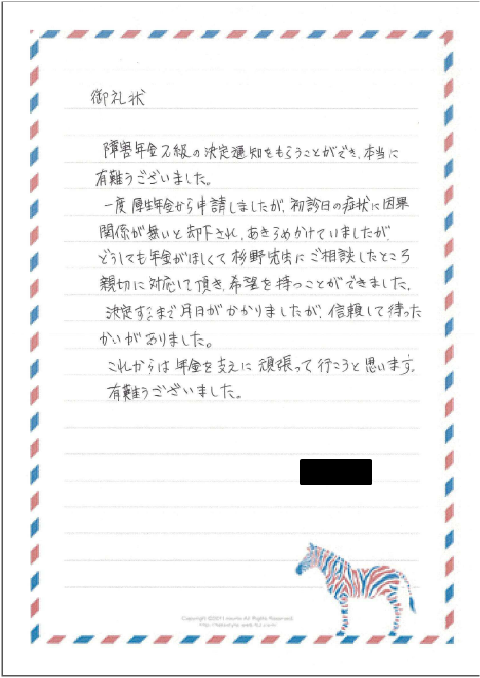 御礼状
障害年金2級の決定通知をもらうことができ、本当に
有難うございました。
一度厚生年金から申請しましたが、初診日の症状に因果
関係が無いと却下され、あきらめかけていましたが、
どうしても年金がほしくて杉野先生にご相談したところ
親切に対応して頂き、希望を持つことができました。
決定するまで月日がかかりましたが、信頼して待った
かいがありました。
これからは年金を支えに頑張って行こうと思います。
有難うございました。
All Rights Reserved.